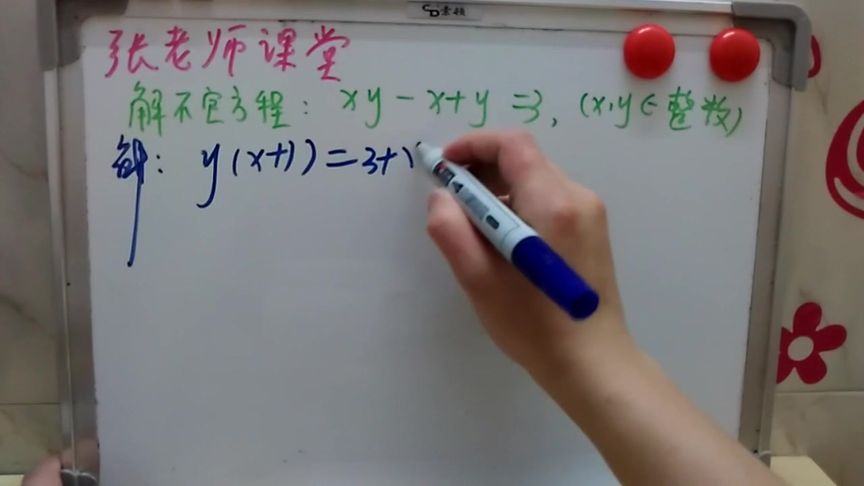 张老师课堂
解不定方程: xy-x+y=3, (x,y∈整数)
解: y(x+1)=3+